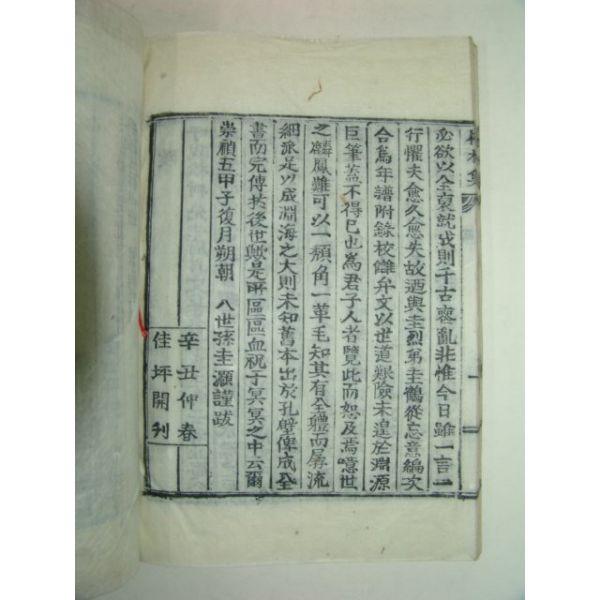 必欲以全裒就戎則千古喪亂非惟今日雖一言一
行懼夫愈久愈失故迺與圭烈弟圭鶴從忘意編次
合爲年譜附錄校讎弁文以世道艱險未遑於淵源
巨筆蓋不得已也爲君子人者覽此而恕及焉噫世
之麟鳳難可以一頬角一革毛知其有全軆而孱流
細派是以成淵海之大則未知舊本出於孔壁俾成全
書而完傳於後世歟是區區血祝于冥冥之中云爾
崇禎五甲子復月朔朝 八世孫圭灝謹跋
辛丑仲春
佳坪開刊